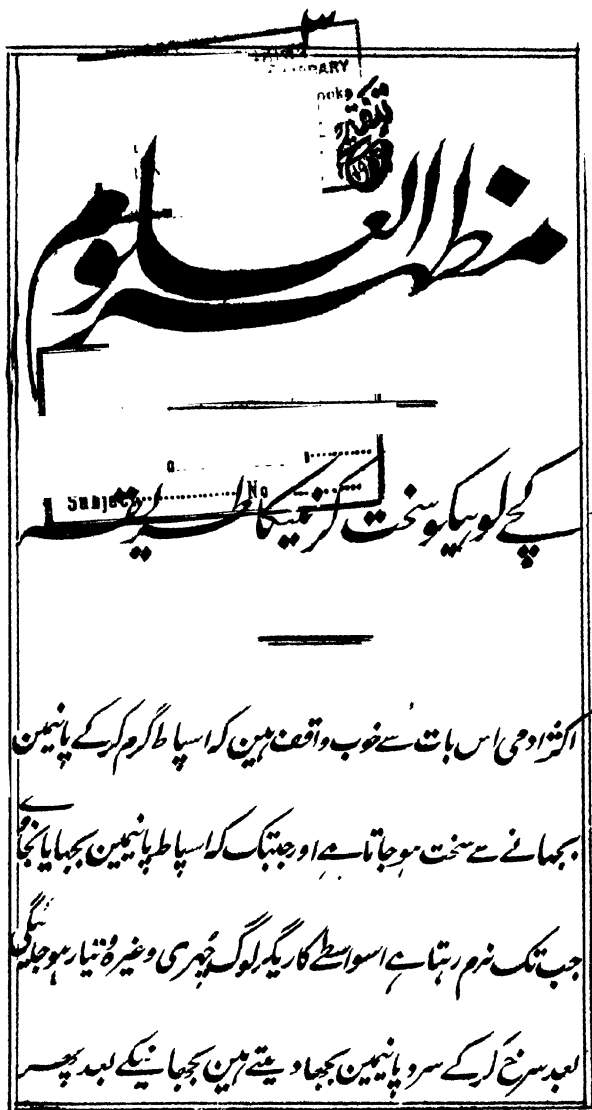 ٣
LIBRARY
مظہر العلوم
Subject No
کچے لوہیکو سخت کرنیکا طریقہ
اکثر ادمی اس بات سے خوب واقف ہین کہ اسپاط گرم کرکے پانیمین
بجھانے سے سخت ہوجاتا ہے اور جبتک کہ اسپاط پانیمین بجھایا نجاوے
جب تک نرم رہتا ہے اسواسطے کاریگر لوگ چھری وغیرہ تیار ہوجانیکی
بعد سرخ کرکے سرد پانیمین بجھا دیتے ہین بجھانیکے بعد پھر